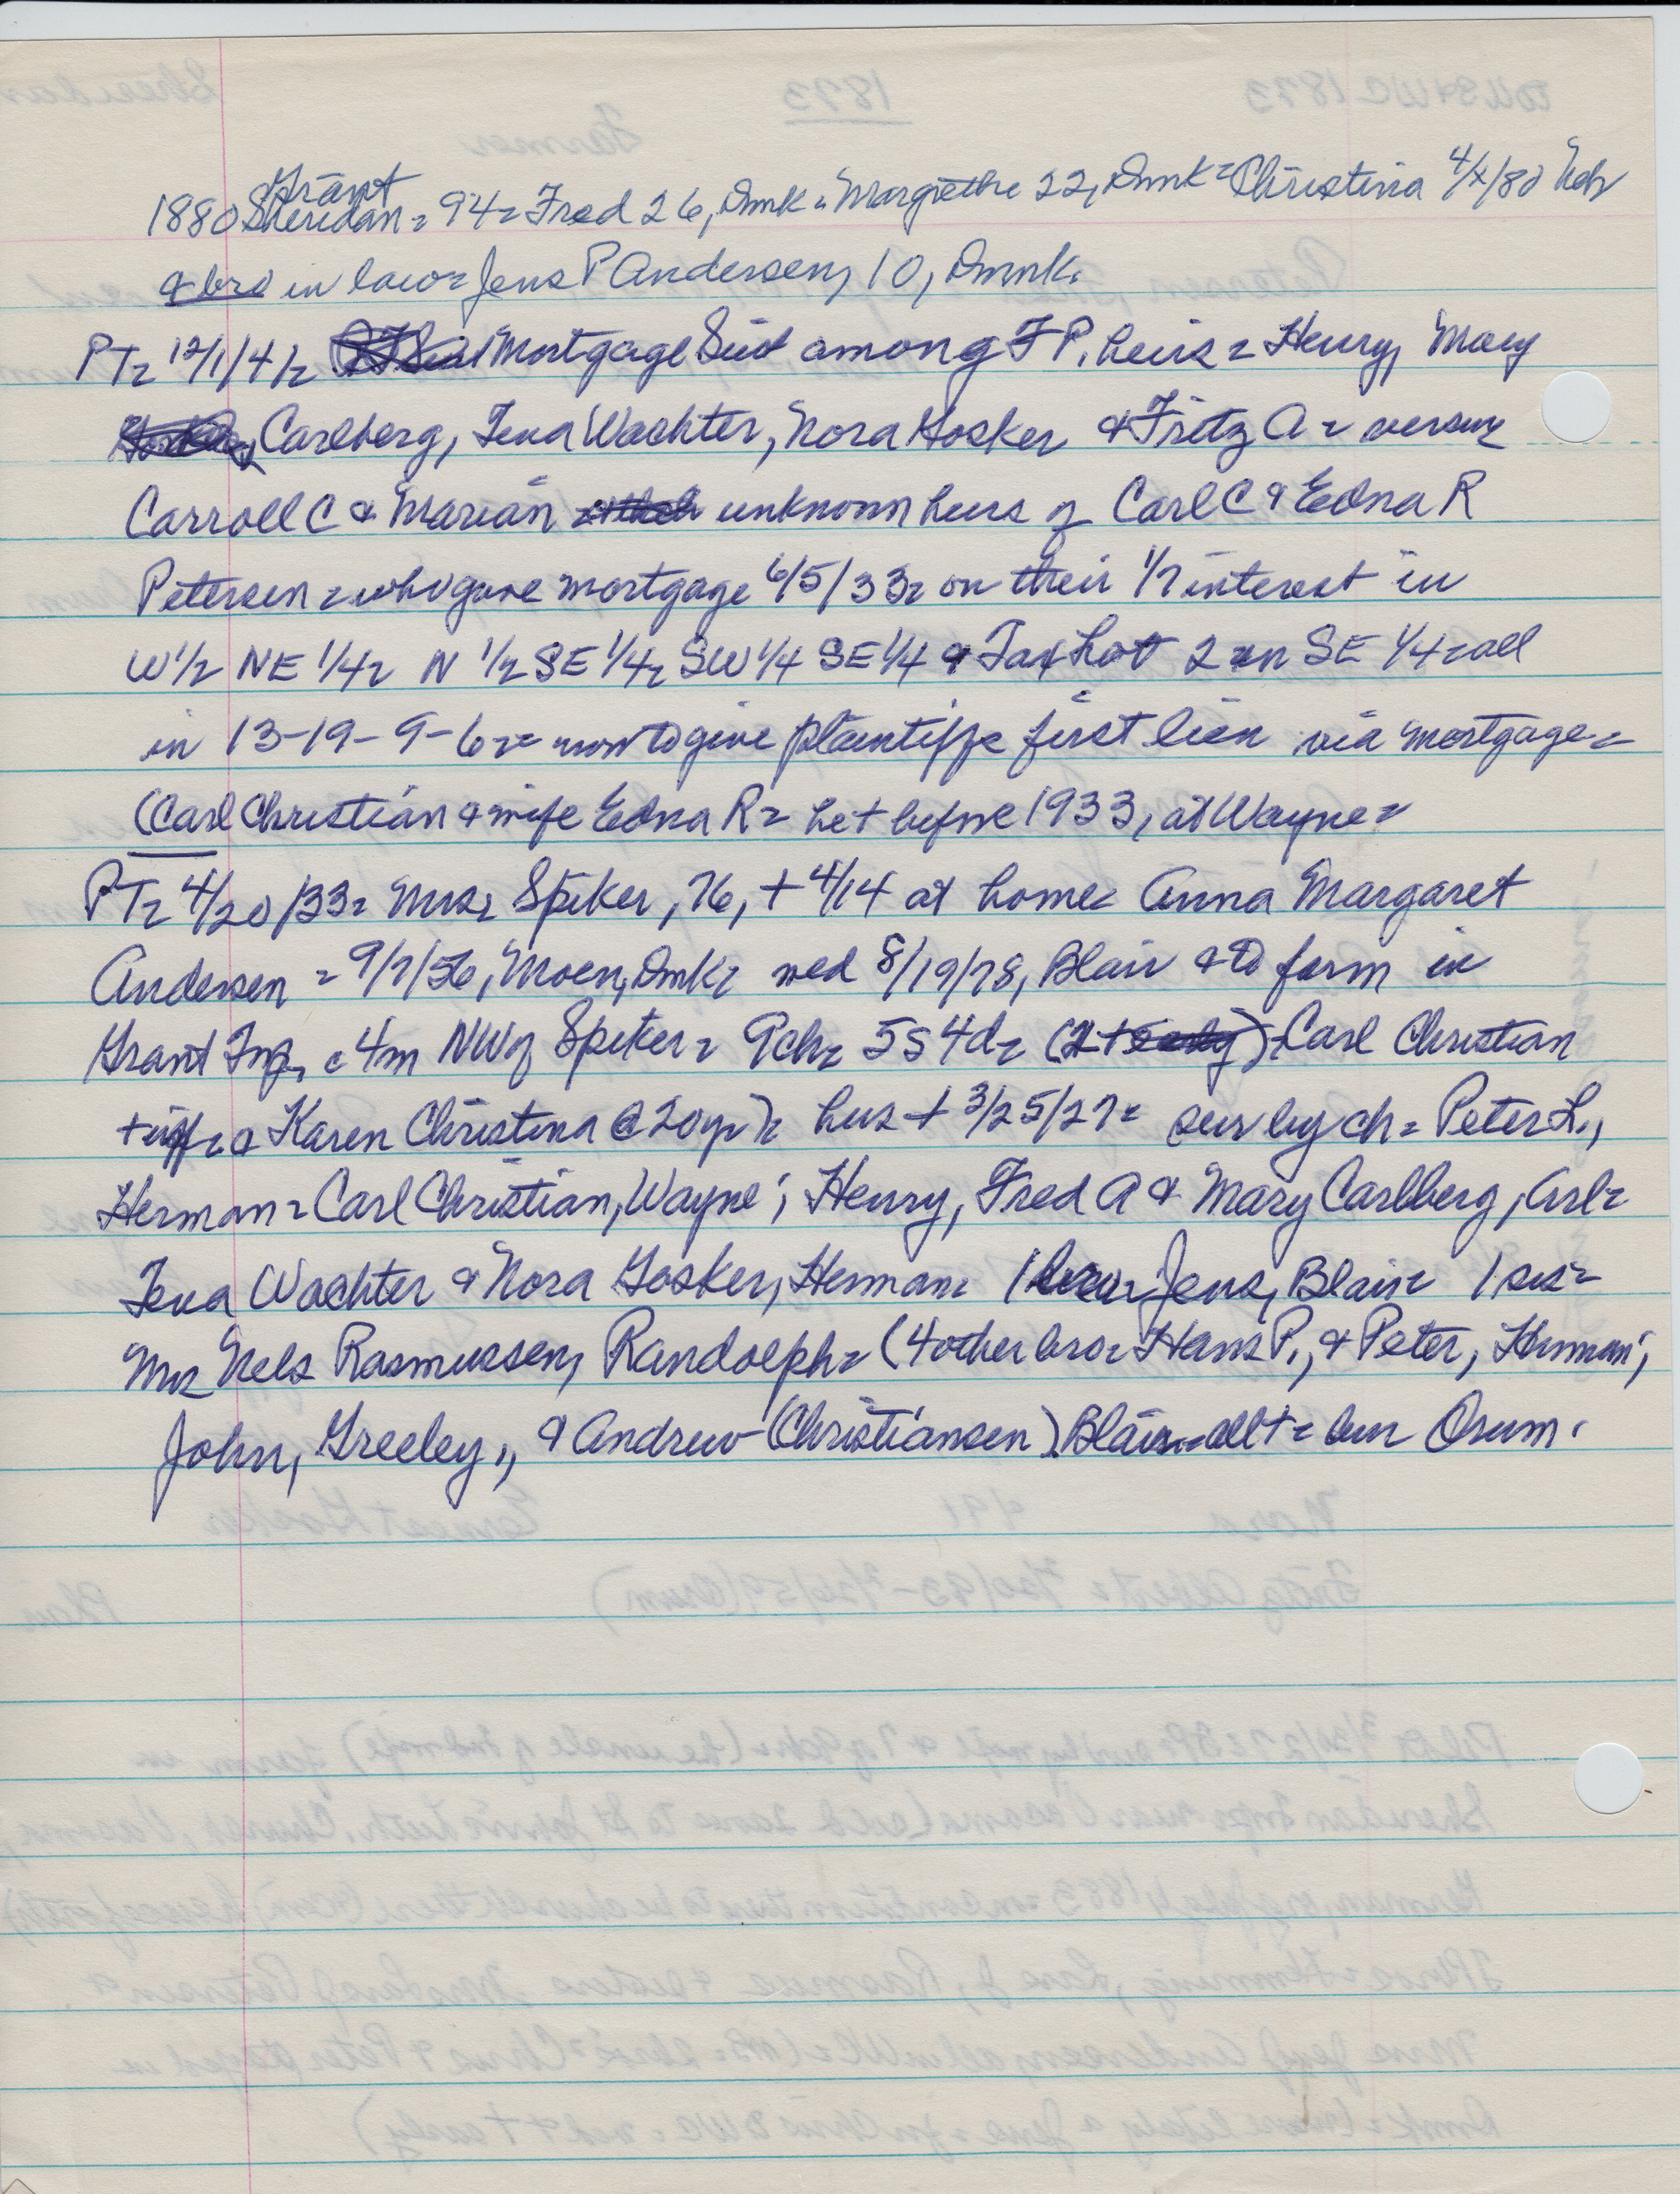 Grant
1880 Sheridan = 94 = Fred 26, Dmk = Margrethe 22, Dmk = Christina 4/x/80 Neb
& bro in law = Jens P Andersen, 10, Dmnk.
PT = 12/1/41 = Mortgage Suit among F P. heirs = Henry, Mary
Carlberg, Tena Wachter, Nora Gosker & Fritz A = versus
Carroll C & Marian unknown heirs of Carl C & Edna R
Petersen = who gave mortgage 6/5/33 = on their 1/7 interest in
W 1/2 NE 1/4 = N 1/2 SE 1/4 = SW 1/4 SE 1/4 & Tax Lot 2 in SE 1/4 = all
in 13-19-9-6 = = now to give plaintiffs first lien via mortgage =
(Carl Christian & wife Edna R = he + before 1933, at Wayne =
PT = 4/20/33 = Mrs = Spiker, 76, + 4/14 at home = Anna Margaret
Andersen = 9/7/56, Moen, Dmk = wed 8/19/78, Blair & to farm in
Grant Twp, c 4m NW of Spiker = 9 ch = 5s 4d = Carl Christian
+ inf = & Karen Christina @ 20 yr) = hus + 3/25/27 = sur by ch = Peter L.,
Herman = Carl Christian, Wayne; Henry, Fred A & Mary Carlberg, Arl =
Tena Wachter & Nora Gosker, Herman = 1 bro = Jens, Blair = 1 sis =
Mrs Nels Rasmussen, Randolph = (4 other bro = Hans P., & Peter, Herman;
John, Greeley,, & Andrew (Christiansen) Blair = all + = bur Orum.